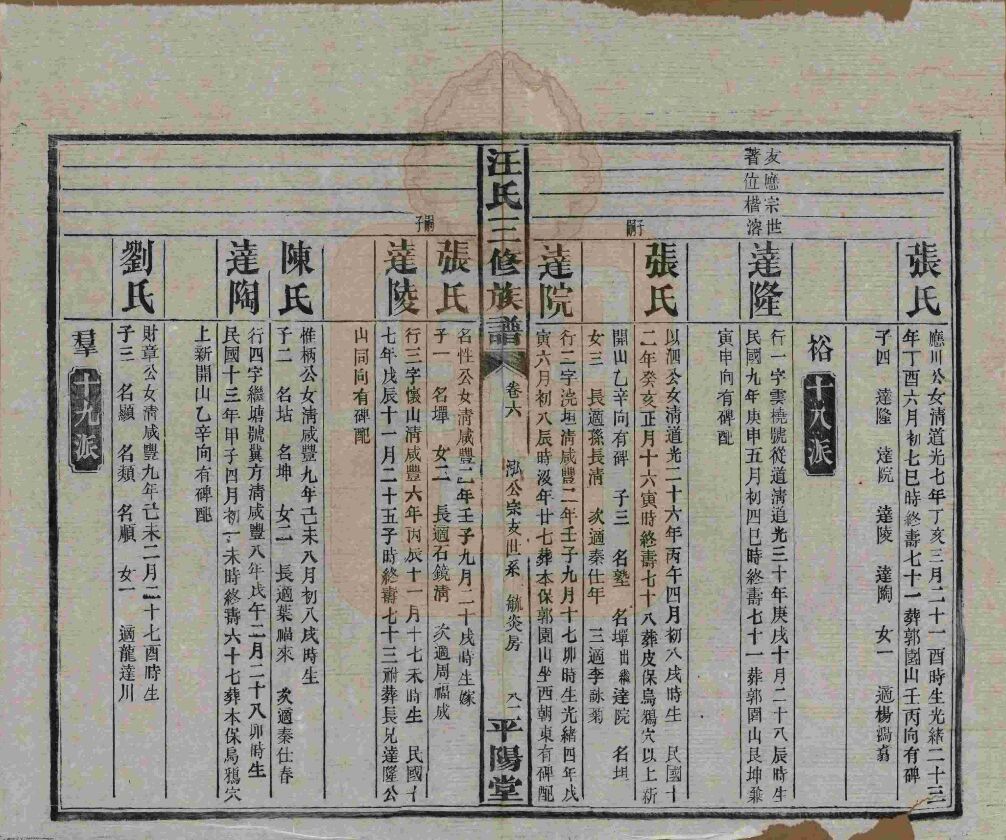 友應宗世
著位楷濬
張氏
應川公女淸道光七年丁亥三月二十一酉時生光緒二十三
年丁酉六月初七巳時終壽七十一葬郭園山壬丙向有碑
子四 達隆 達院 達陵 達陶 女一 適楊鴻翥
裕
十八派
達隆
行一字雲橈號從道淸道光三十年庚戌十月二十八辰時生
民國九年庚申五月初四巳時終壽七十一葬郭園山艮坤兼
寅申向有碑配
張氏
以淵公女淸道光二十六年丙午四月初八戌時生 民國十
二年癸亥正月十六寅時終壽七十八葬皮保烏鴉穴以上新
開山乙辛向有碑 子三 名塾 名墠出繼達院 名坦
女三 長適孫長淸 次適秦仕年 三適李詠菊
嗣子
達院
行二字浣垣淸咸豐二年壬子九月十七卯時生光緒四年戊
寅六月初八辰時沒年廿七葬本保郭園山坐西朝東有碑配
汪氏三修族譜
卷六
泓公宗支世系 毓炎房
八二
平陽堂
張氏
名性公女淸咸豐二年壬子九月二十戌時生嫁
子一 名墠 女二 長適石鏡淸 次適周福成
嗣子
達陵
行三字懷山淸咸豐六年丙辰十一月十七未時生 民國十
七年戊辰十一月二十五子時終壽七十三祔葬長兄達隆公
山同向有碑配
陳氏
惟柄公女淸咸豐九年己未八月初八戌時生
子二 名坫 名坤 女二 長適葉福來 次適秦仕春
達陶
行四字繼塘號冀方淸咸豐八年戊午二月二十八卯時生
民國十三年甲子四月初一未時終壽六十七葬本保烏鴉穴
上新開山乙辛向有碑配
劉氏
財章公女淸咸豐九年己未二月二十七酉時生
子三 名顯 名類 名順 女一 適龍達川
羣
十九派